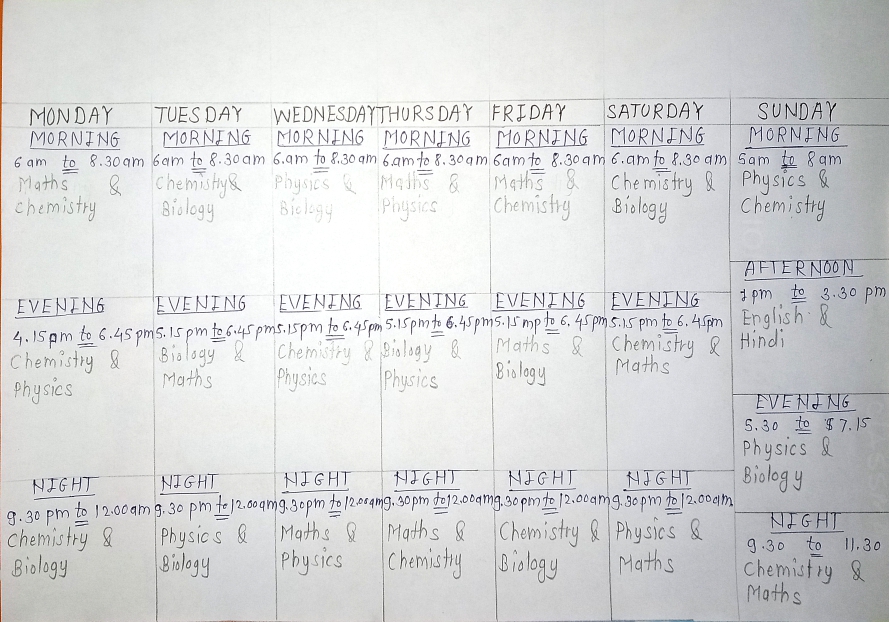 MONDAY
MORNING
6 am to 8.30 am
Maths &
chemistry
EVENING
4.15 pm to 6.45 pm
Chemistry &
Physics
NIGHT
9.30 pm to 12.00 am
Chemistry &
Biology
TUESDAY
MORNING
6am to 8.30 am
Chemistry &
Biology
EVENING
5.15 pm to 6.45 pm
Biology &
Maths
NIGHT
9.30 pm to 12.00 am
Physics &
Biology
WEDNESDAY
MORNING
6.am to 8.30 am
Physics &
Biology
EVENING
5.15 pm to 6.45 pm
Chemistry &
Physics
NIGHT
9.30pm to 12.00am
Maths &
Physics
THURSDAY
MORNING
6.am to 8.30 am
Maths &
Physics
EVENING
5.15 pm to 6.45 pm
Biology &
Physics
NIGHT
9.30pm to 12.00am
Maths &
Chemistry
FRIDAY
MORNING
6am to 8.30 am
Maths &
Chemistry
EVENING
5.15 mp to 6.45 pm
Maths &
Biology
NIGHT
9.30pm to 12.00am
Chemistry &
Biology
SATURDAY
MORNING
6.am to 8.30 am
Chemistry &
Biology
EVENING
5.15 pm to 6.45pm
Chemistry &
Maths
NIGHT
9.30pm to 12.00am
Physics &
Maths
SUNDAY
MORNING
5am to 8am
Physics &
Chemistry
AFTERNOON
1pm to 3.30 pm
English &
Hindi
EVENING
5.30 to 7.15
Physics &
Biology
NIGHT
9.30 to 11.30
Chemistry &
Maths